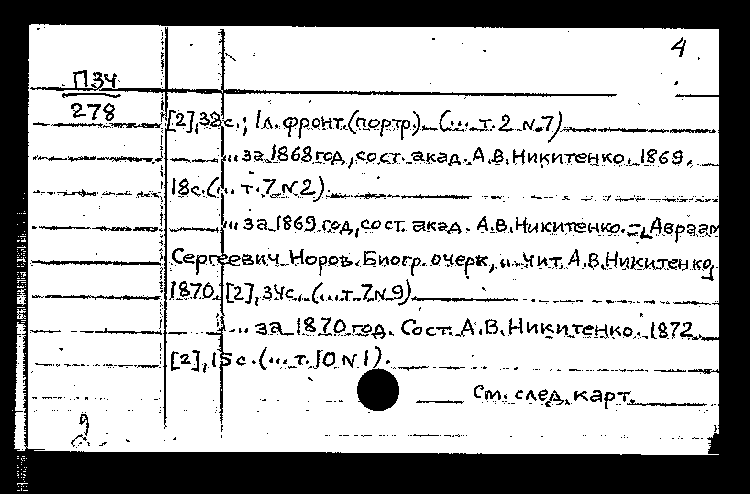 4
ПЗЧ
278
[2],38с.; 1л. фронт.(портр). (... т.2 №7)
... за 1868 год, сост. акад. А.В.Никитенко. 1869.
18с.(... т.7 №2).
... за 1869 год, сост. акад. А.В.Никитенко.-[Авраам
Сергеевич Норов. Биогр. очерк, ... чит. А.В.Никитенко]
1870. [2],34с. (... т.7 №9)
... за 1870 год. Сост. А.В.Никитенко. 1872.
[2],15с.(... т.10 №1).
См. след. карт.
2